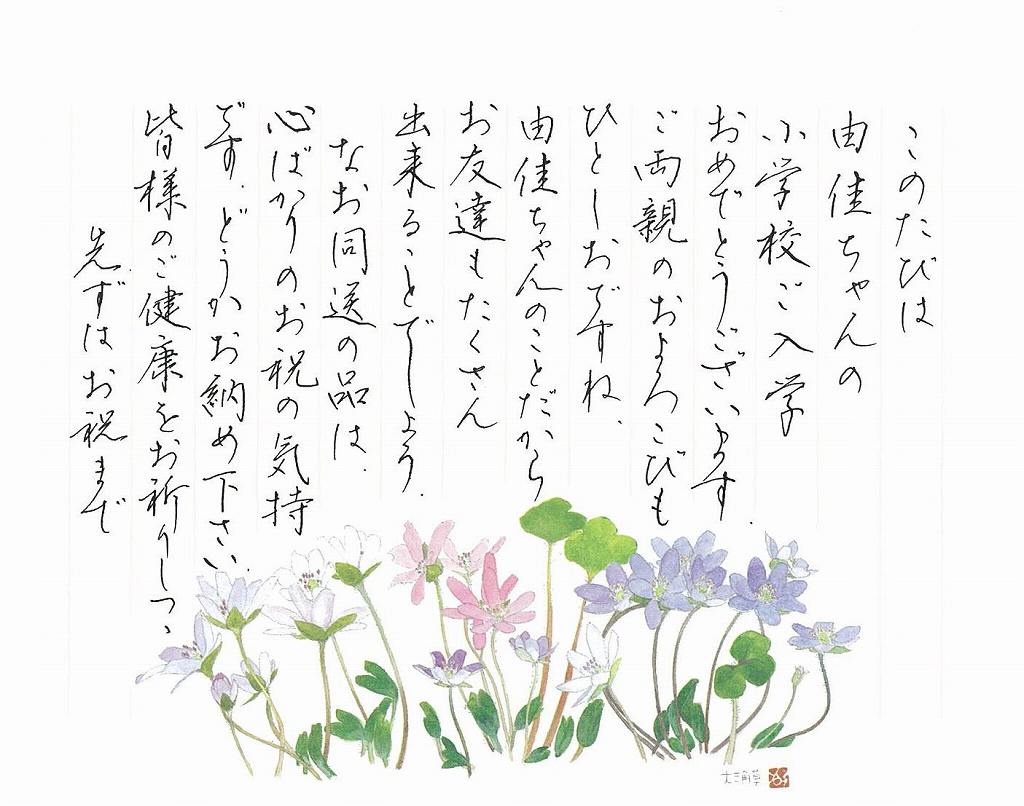 このたびは
由佳ちゃんの
小学校ご入学
おめでとうございます.
ご両親のおよろこびも
ひとしおですね、
由佳ちゃんのことだから
お友達もたくさん
出来ることでしょう.
なお同送の品は、
心ばかりのお祝の気持
です. どうかお納め下さい.
皆様のご健康をお祈りしつゝ
先ずはお祝まで
大三角草